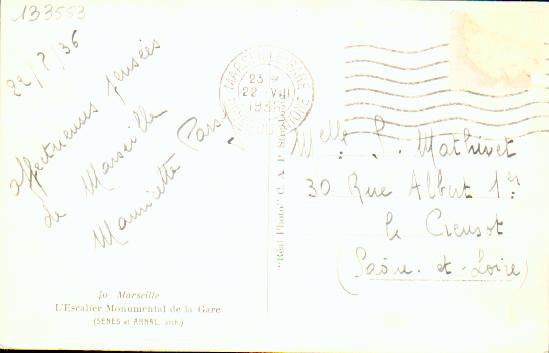 133583
22/7/36
affectueuses pensées
de Marseille
Mauricette
40 Marseille
L'Escalier Monumental de la Gare
(SENÈS et ARNAL, arch.)
"Réal Photo" C. A. P. Strasbourg
MARSEILLE GARE
23 H
22 VII
1936
BCHES DU RHONE
Melle S. Mathivet
30 Rue Albert 1er
le Creusot
(Saône-et-Loire)